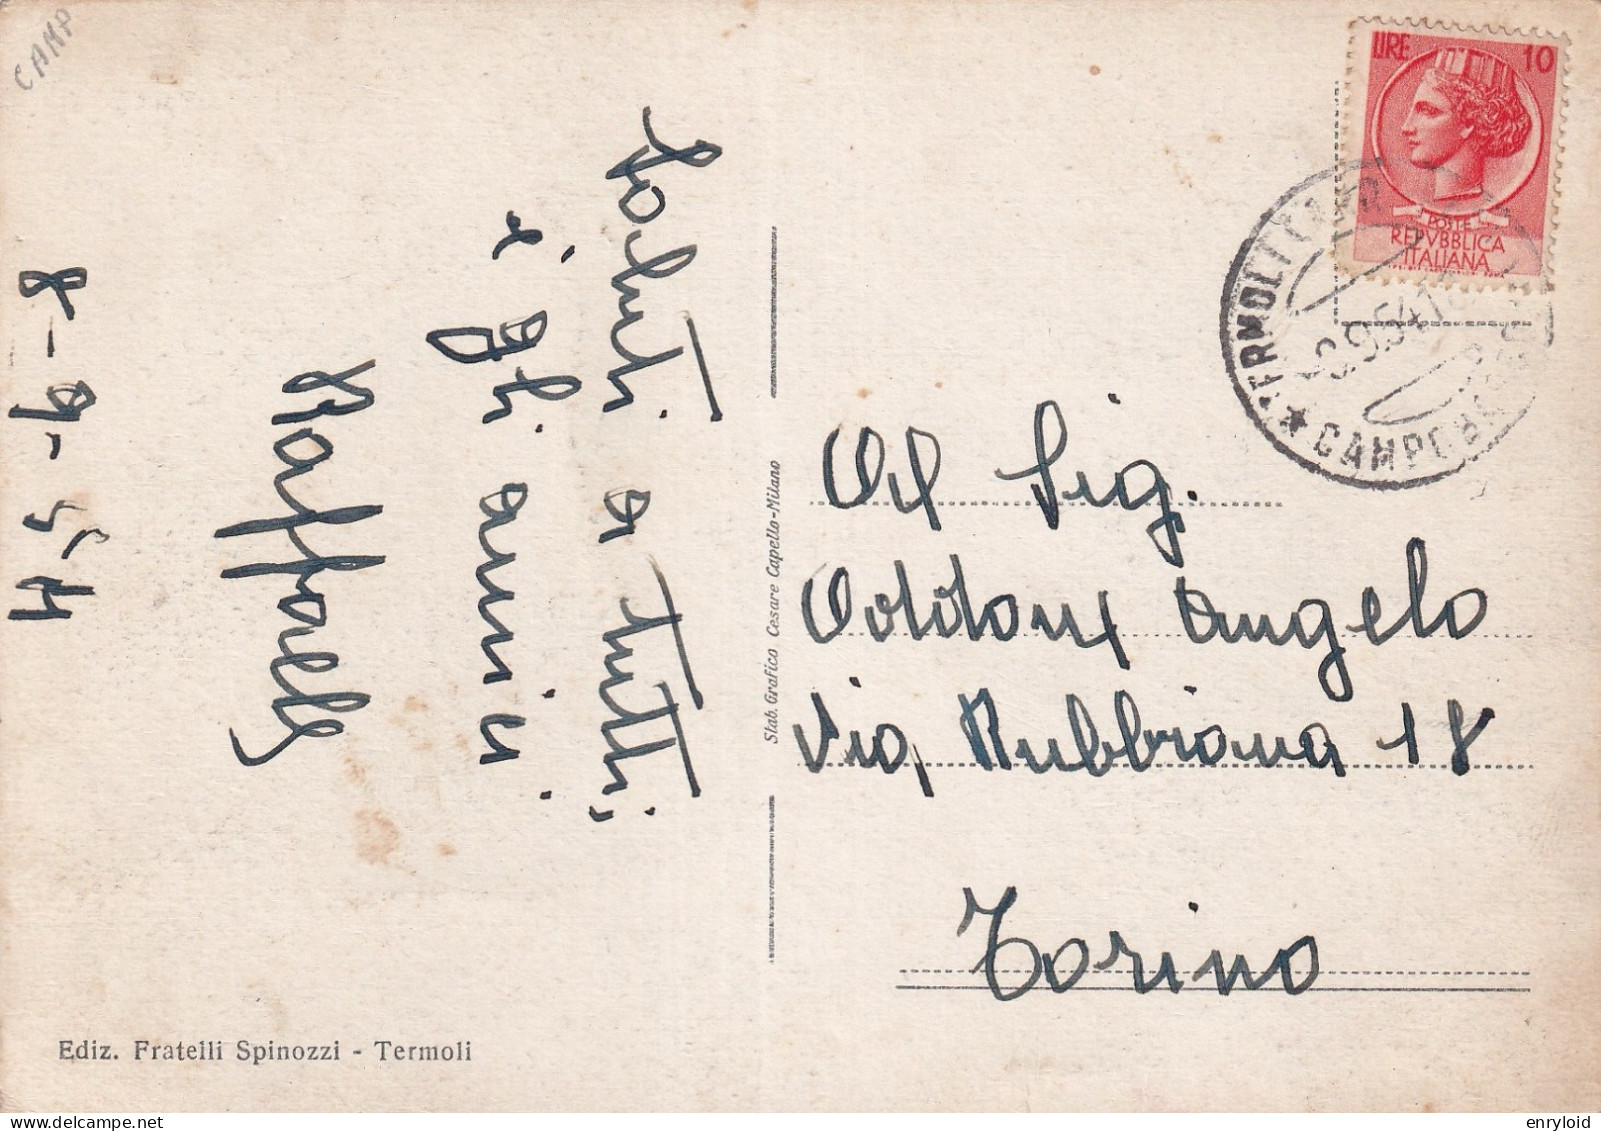 CAMP
Saluti a tutti,
e gli amici
Raffaele
8-9-54
Ediz. Fratelli Spinozzi - Termoli
Stab. Grafico Cesare Capello-Milano
LIRE 10
POSTE
REPVBBLICA
ITALIANA
CAMPOBASSO
9.54
Al Sig.
Oddoni Angelo
Via Rubbiana 18
Torino
delcampe.net
enryloid